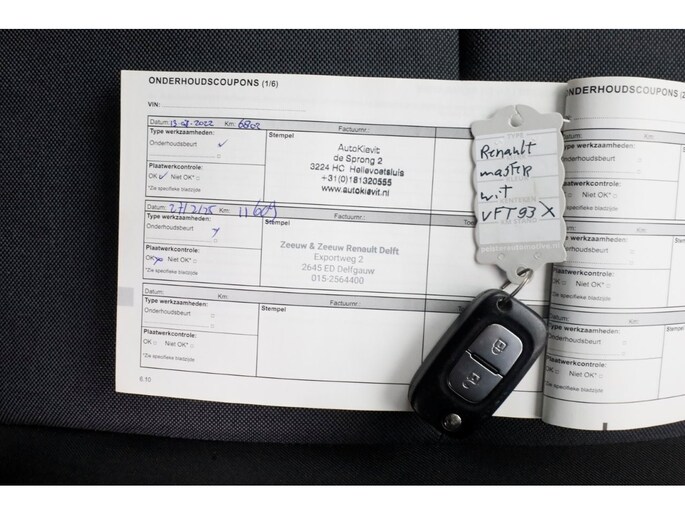 ONDERHOUDSCOUPONS (1/6)
VIN:
Datum: 13-07-2022 Km: 6802 Factuurnr.:
Type werkzaamheden:
Onderhoudsbeurt
Stempel
AutoKievit
de Sprong 2
3224 HC Hellevoetsluis
+31(0)181320555
www.autokievit.nl
Plaatwerkcontrole:
OK Niet OK*
*Zie specifieke bladzijde
Datum: 27/2/25 Km: 11609 Factuurnr.:
Type werkzaamheden:
Onderhoudsbeurt
Stempel
Zeeuw & Zeeuw Renault Delft
Exportweg 2
2645 ED Delfgauw
015-2564400
Plaatwerkcontrole:
OK Niet OK*
*Zie specifieke bladzijde
Datum: Km: Factuurnr.:
Type werkzaamheden:
Onderhoudsbeurt
Stempel
Plaatwerkcontrole:
OK Niet OK*
*Zie specifieke bladzijde
6.10
TYPE
Renault
master
wit
KENTEKEN
VFT93X
NDERHOUDSCOUPONS (2
*Zie specifieke bladzijde
Datum: Km:
Type werkzaamheden:
Onderhoudsbeurt
Plaatwerkcontrole:
OK Niet OK*
*Zie specifieke bladzijde